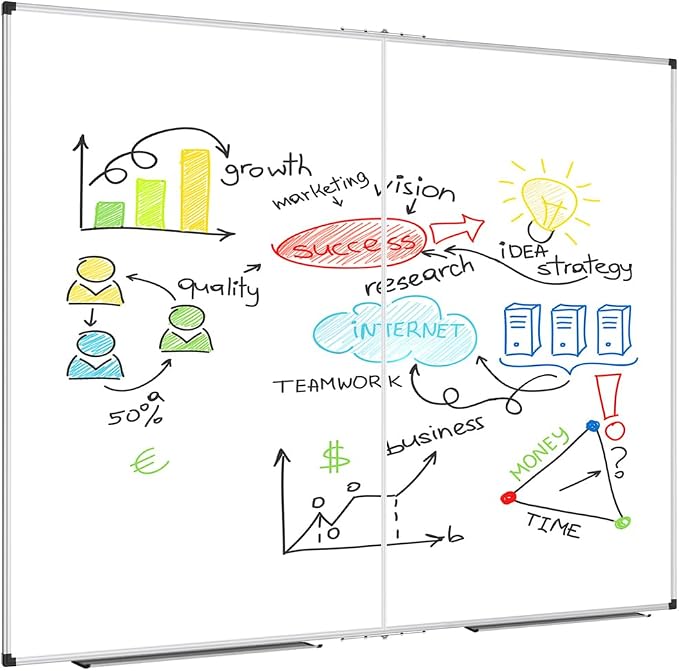 growth
marketing
vision
success
iDEA
research
strategy
quality
iNTERNET
TEAMWORK
a
50%
business
€
$
MONEY
!
?
TIME
b